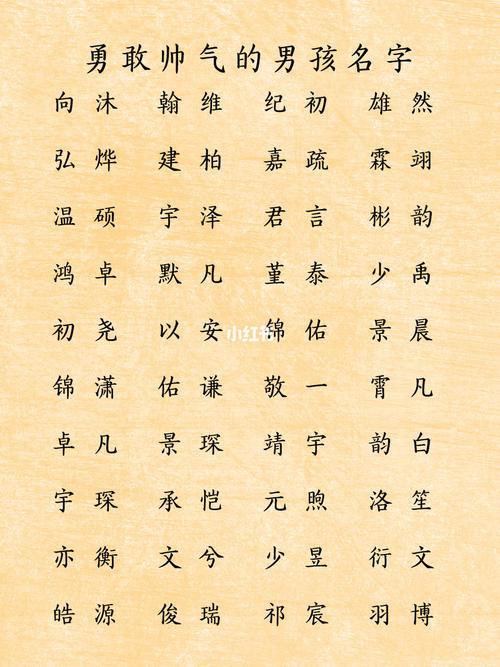 勇敢帅气的男孩名字
向沐 翰维 纪初 雄然
弘烨 建柏 嘉疏 霖翊
温硕 宇泽 君言 彬韵
鸿卓 默凡 堇泰 少禹
初尧 以安 锦佑 景晨
小红书
锦潇 佑谦 敬一 霄凡
卓凡 景琛 靖宇 韵白
宇琛 承恺 元煦 洛笙
亦衡 文兮 少昱 衍文
皓源 俊瑞 祁宸 羽博